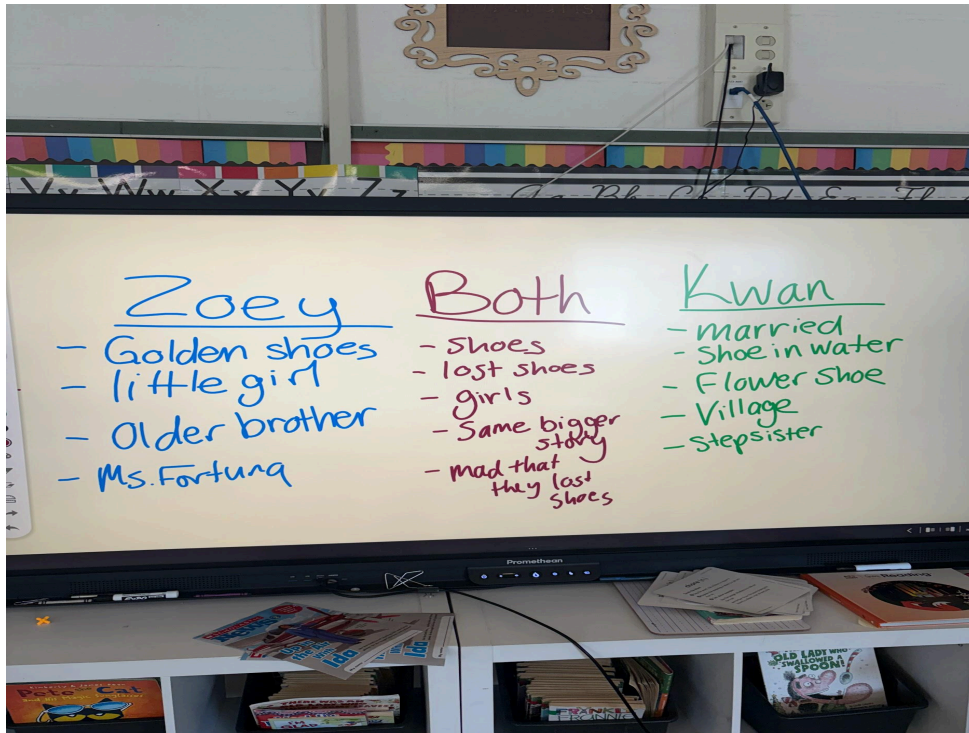 Vv Ww Xx Yy Zz
Zoey
- Golden shoes
- little girl
- Older brother
- Ms. Fortuna
Both
- shoes
- lost shoes
- girls
- Same bigger
story
- mad that
they lost
shoes
Kwan
- married
- Shoe in water
- Flower Shoe
- Village
- Stepsister
Promethean
Reading
Pete the Cat
OLD LADY WHO
SWALLOWED A
SPOON!